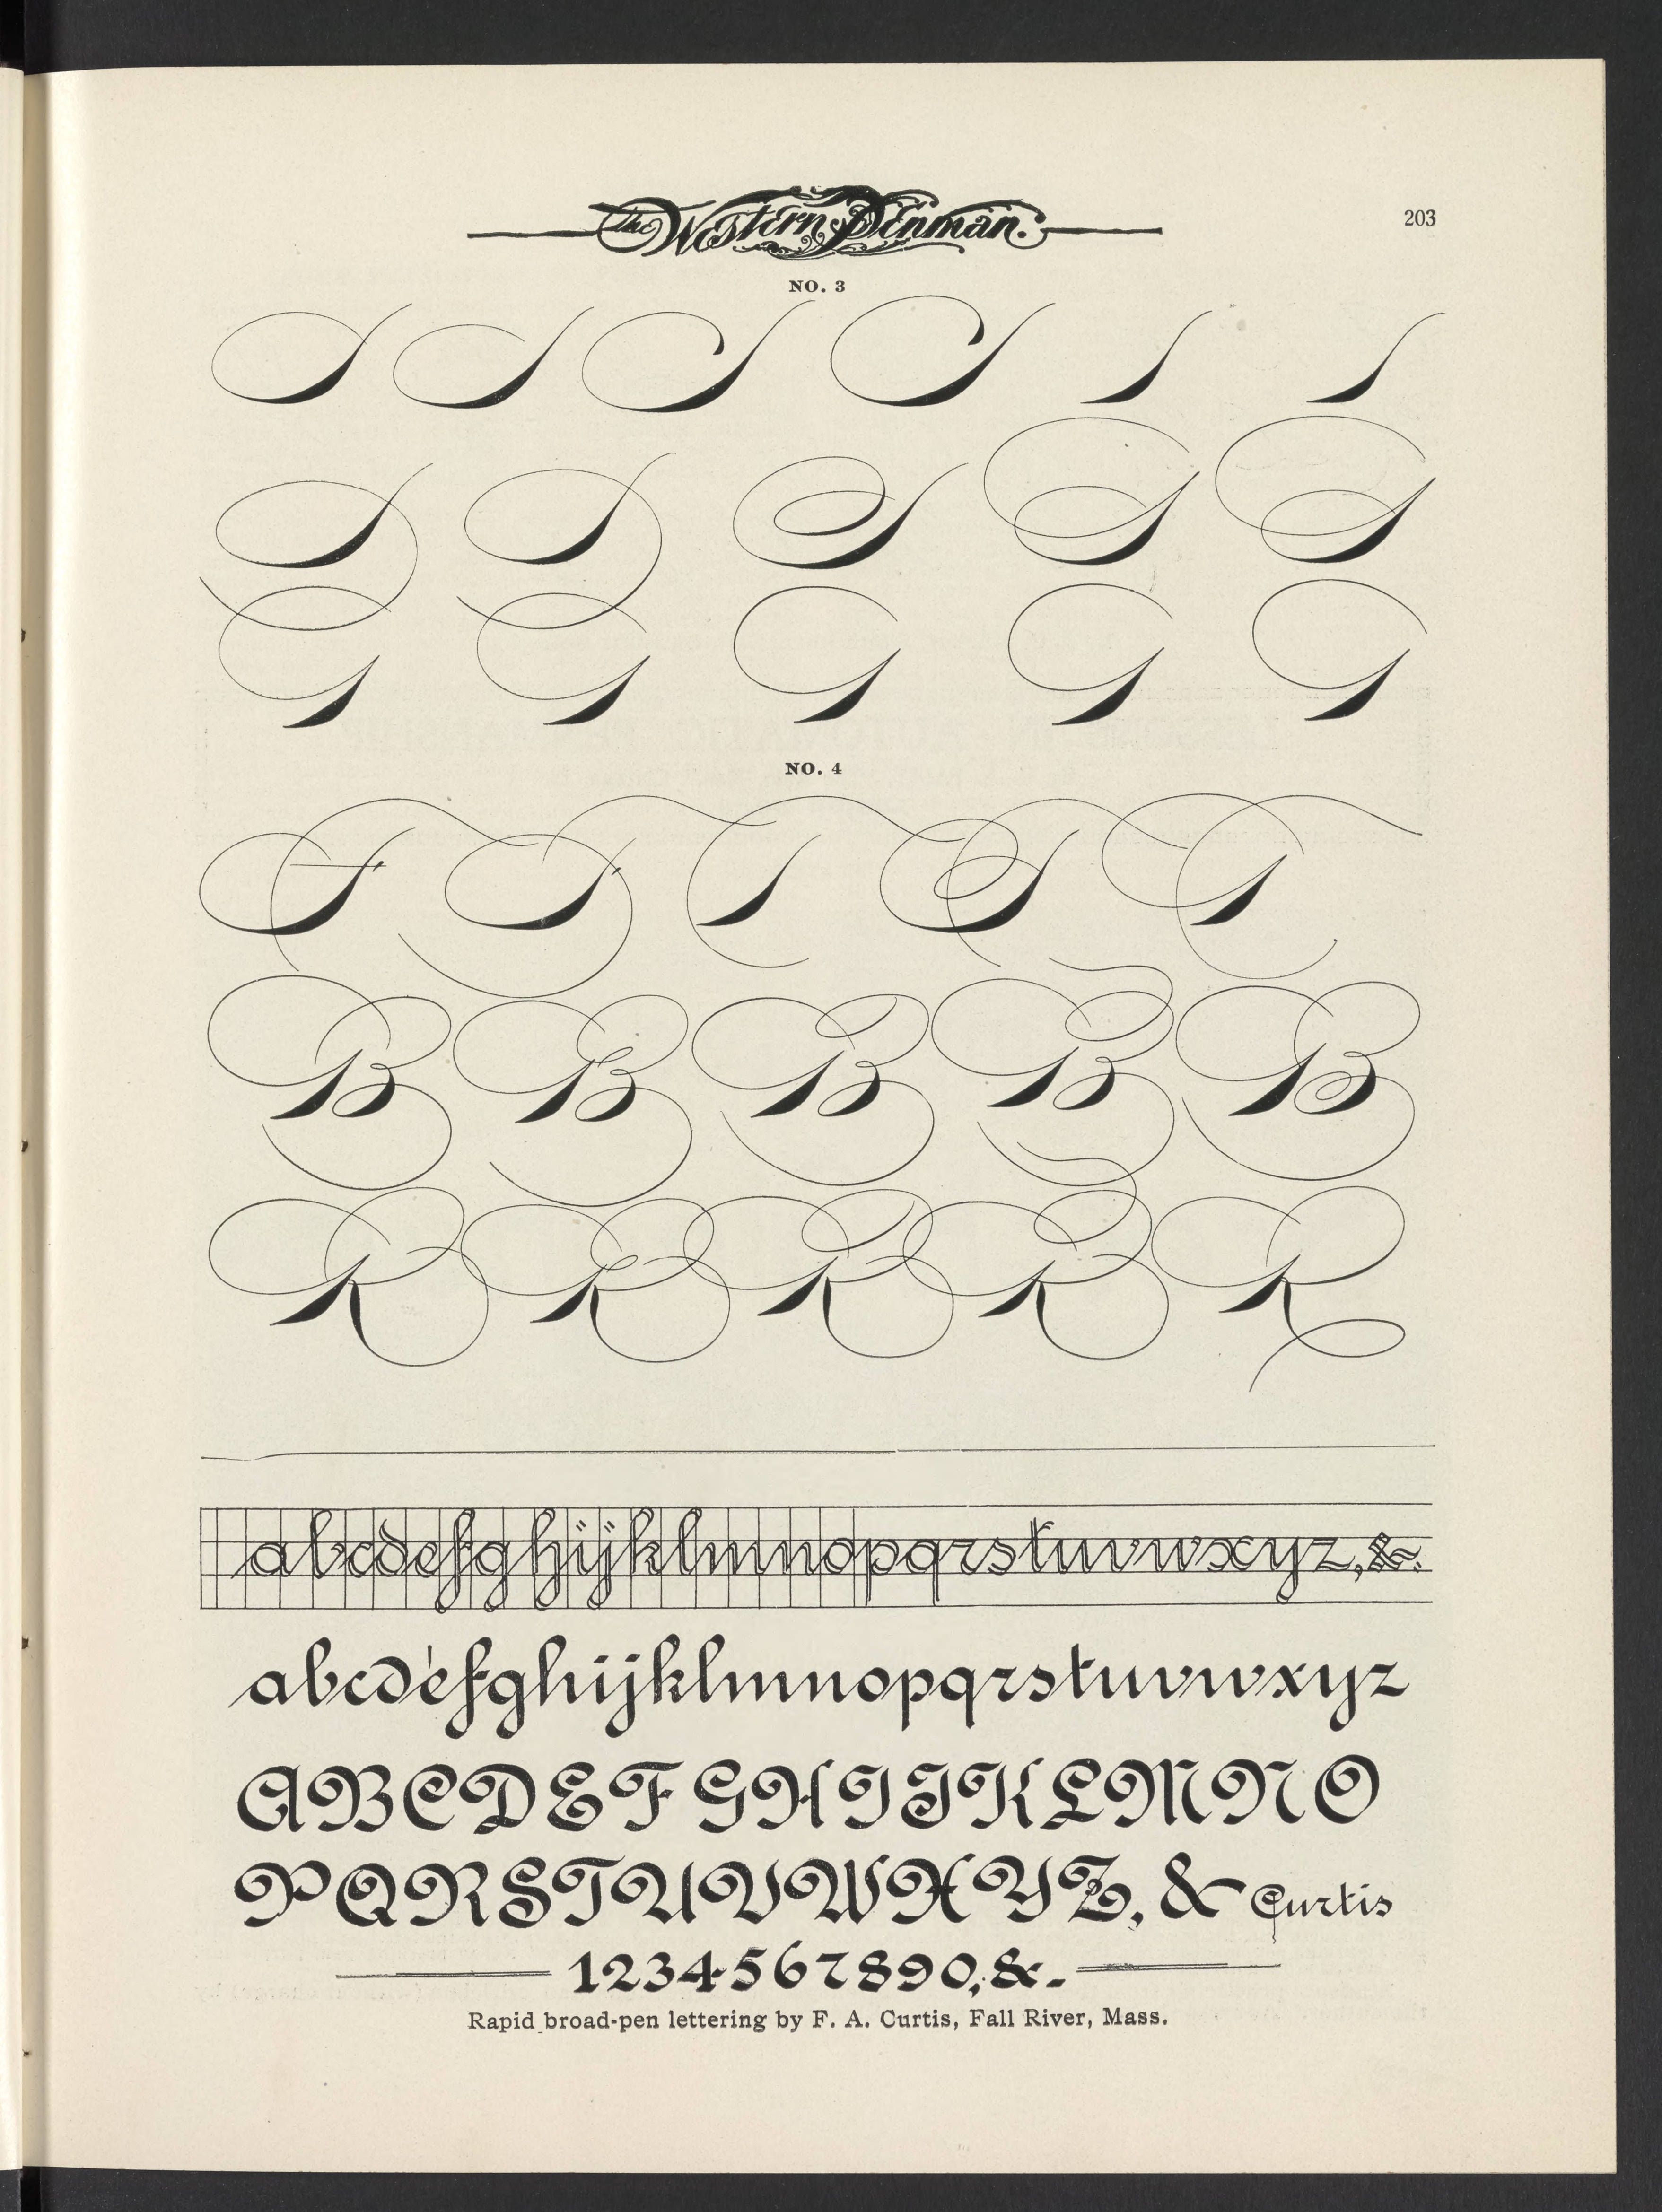 The Western Penman.
203
NO. 3
NO. 4
F F T F T
B B B B B
R R R R R
abcdefghijklmnopqrstuvwxyz,&.
abcdefghijklmnopqrstuvwxyz
ABCDEFGHIJKLMNO
PQRSTUVWXYZ, & Curtis
1234567890,&.
Rapid broad-pen lettering by F. A. Curtis, Fall River, Mass.